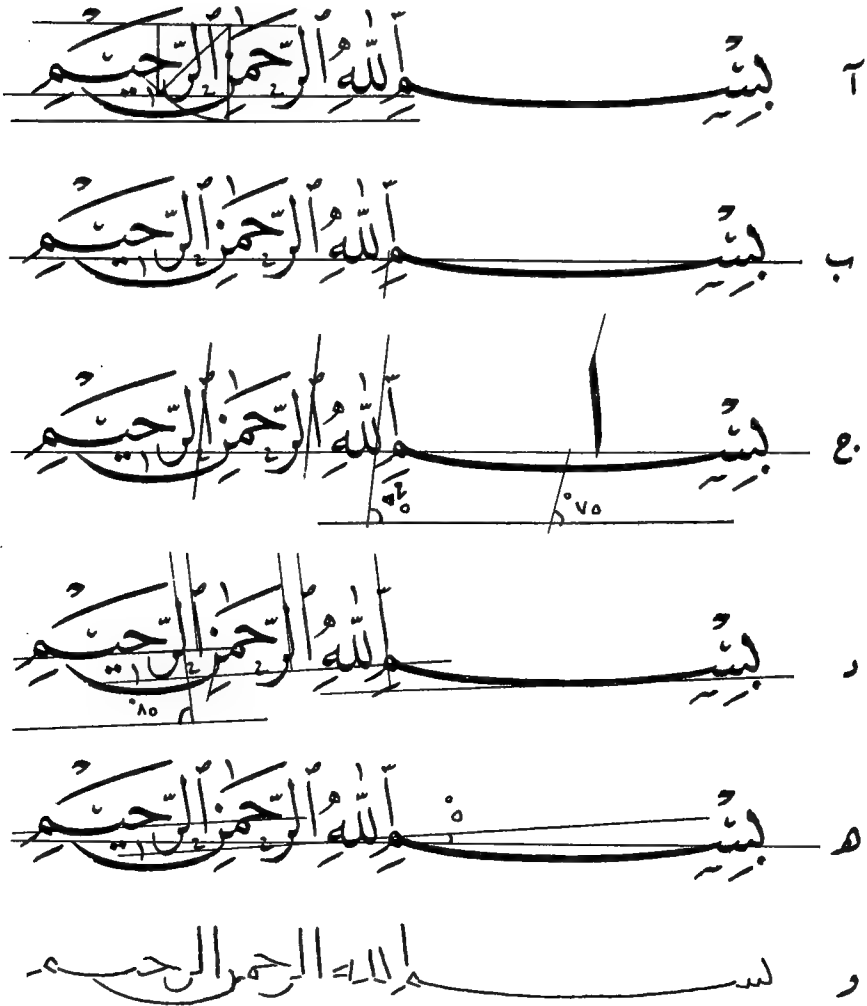 آ بِسْمِ ٱللَّهِ ٱلرَّحْمٰنِ ٱلرَّحِيْمِ
ب بِسْمِ ٱللَّهِ ٱلرَّحْمٰنِ ٱلرَّحِيْمِ
ج بِسْمِ ٱللَّهِ ٱلرَّحْمٰنِ ٱلرَّحِيْمِ
٧٥°
د بِسْمِ ٱللَّهِ ٱلرَّحْمٰنِ ٱلرَّحِيْمِ
٨٥°
ه بِسْمِ ٱللَّهِ ٱلرَّحْمٰنِ ٱلرَّحِيْمِ
٥°
و بسم الله الرحمن الرحيم